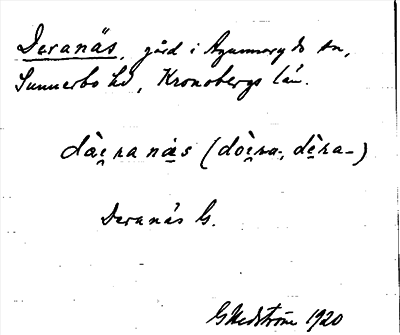 Deranäs, gård i Agunnaryds sn,
Sunnerbo hd, Kronobergs län.
dàe̯ranä̀s (dòe̯ra-, dèra-)
Deranäs G.
G Hedström 1920